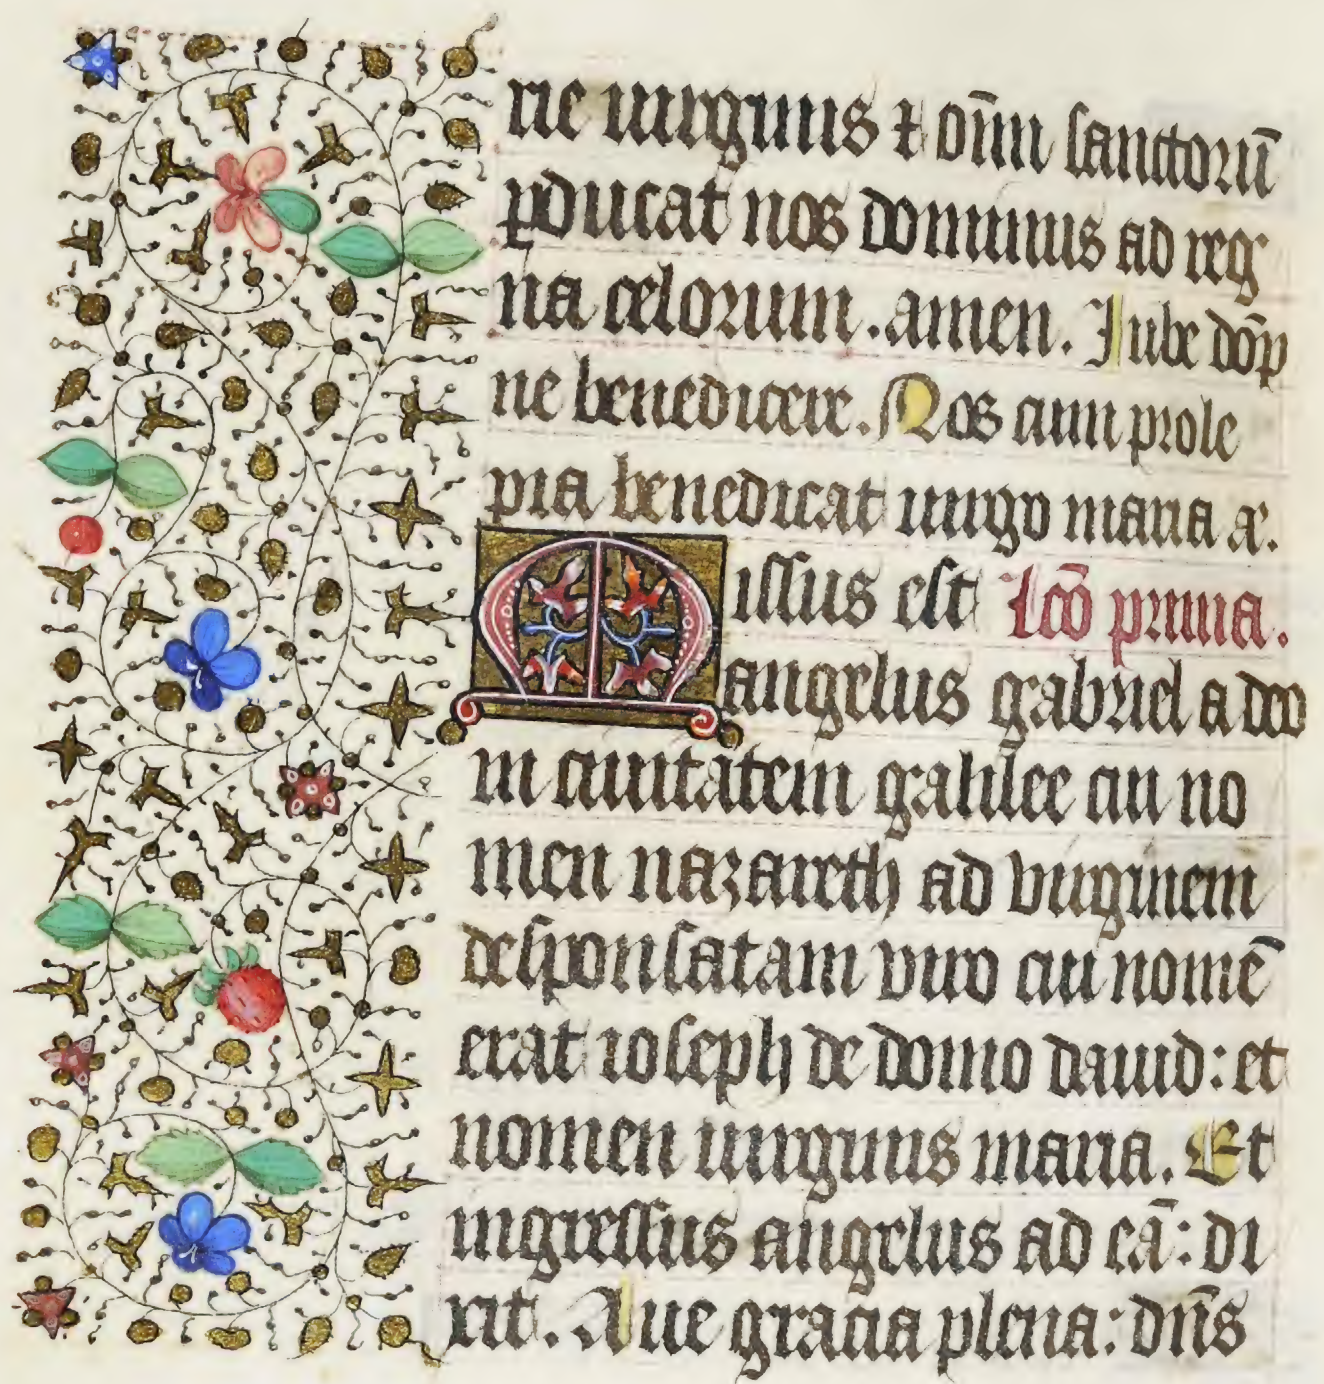 rie uirginis ⁊ oīm sanctorū
ꝑducat nos dominus ad reg
na celorum. amen. Iube dōp
ne benedicere. Nos cum prole
pia benedicat uirgo maria a̓.
Missus est lcō prima.
angelus gabriel a deo
in ciuitatem galilee cui no
men nazareth ad virginem
desponsatam viro cui nomē
erat ioseph de domo dauid: et
nomen uirginis maria. Et
ingressus angelus ad eā: di
xit. Aue gracia plena: dn̄s